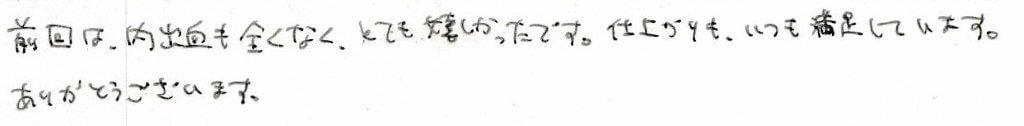 前回は、内出血も全くなく、とても嬉しかったです。仕上がりも、いつも満足しています。
ありがとうございます。